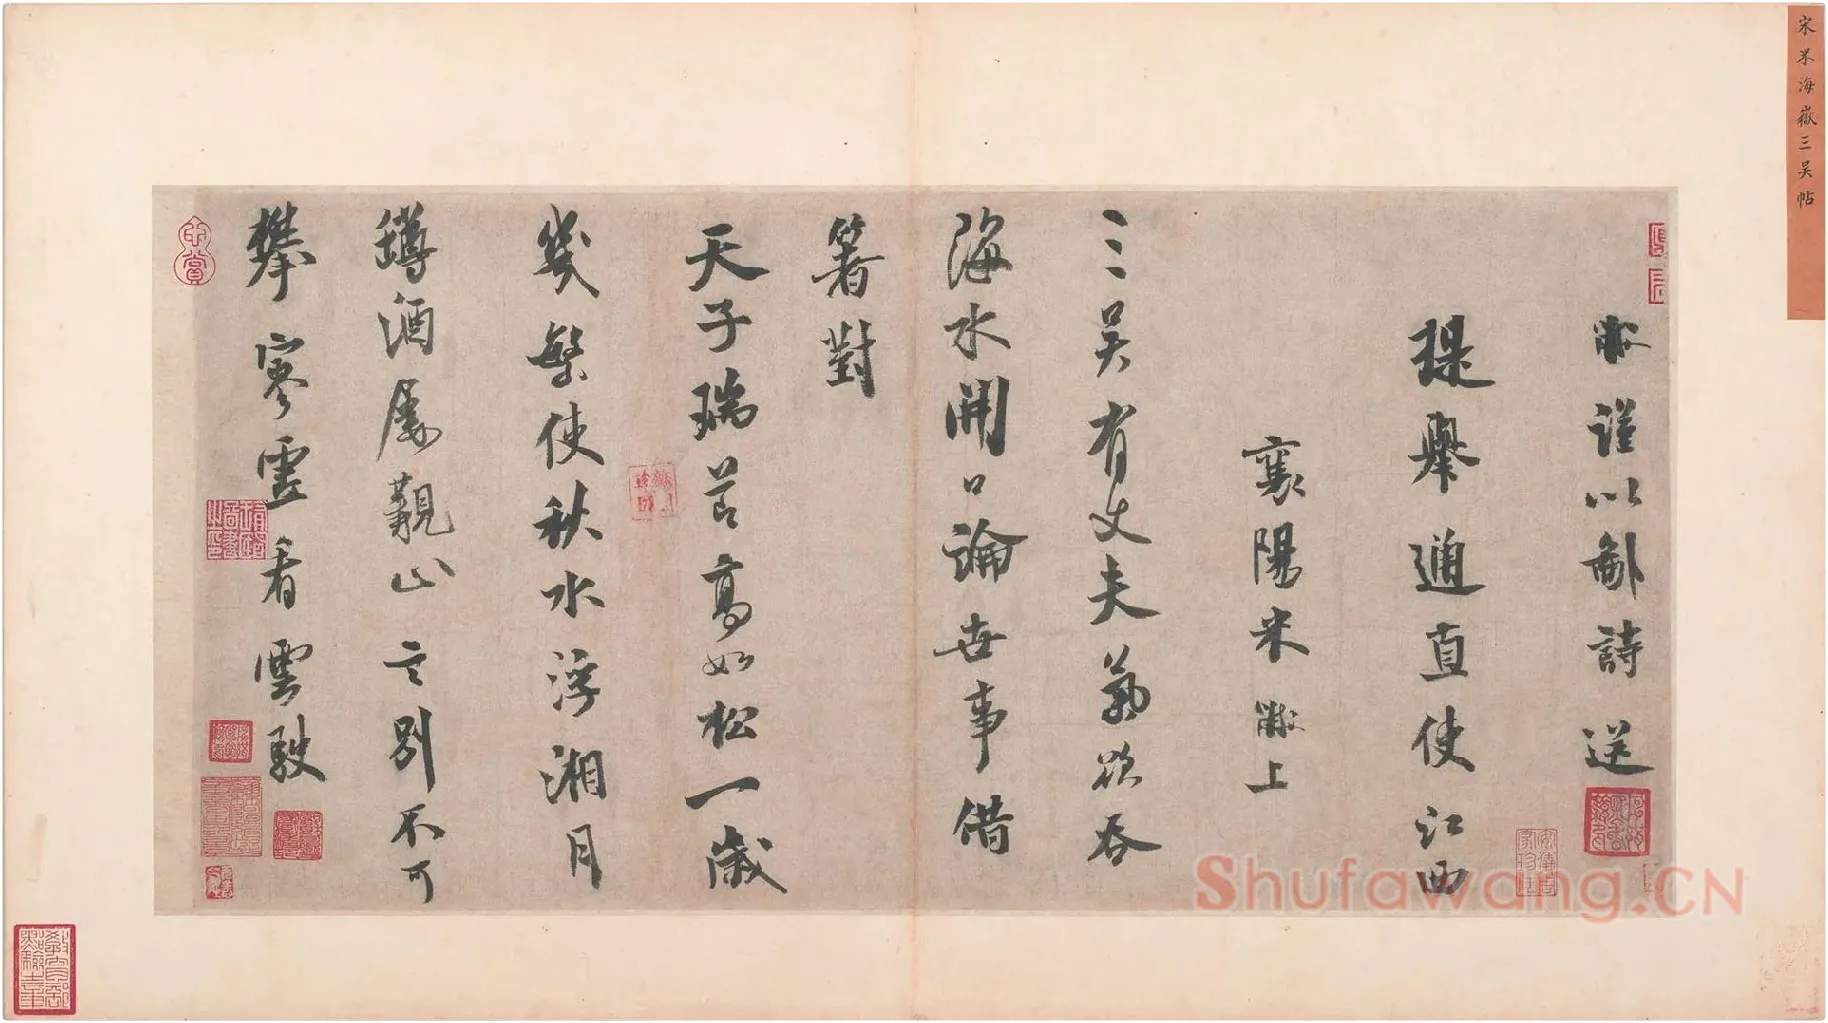 宋米海嶽三吴帖
黻謹以鄙詩送
提舉通直使江西
襄陽米黻上
三吴有丈夫氣欲吞
海水開口論世事借
箸對
天子瑞節高如松一歲
幾繁使秋水浮湘月
罇酒屢覯山言別不可
攀寥雲看雲駛
Shufawang.CN